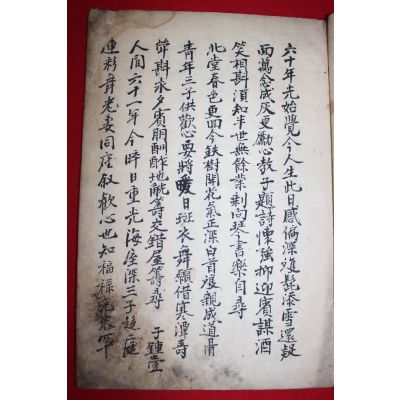 六十年光始覺今人生此日感偏深雙鬂添雪還疑
面萬念成灰更勵心敎子題詩懷強抑迎賓謀酒
笑相斟須知半世無餘業剩向琴書樂自尋
北堂春色更回今鉄樹開花氣正深白首双親成道骨
靑年三子供歡心要將暖日斑衣舞願借寒潭壽
斝斟永夕賓朋酬酢地觥籌交錯屋籌尋 子鍾萱
人間六十一年今晬日重光海屋深三子
連彩舞老妻同座叙歡心也知福祿